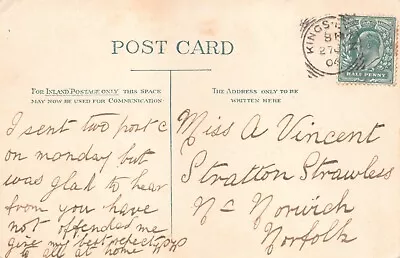 POST CARD
FOR INLAND POSTAGE ONLY THIS SPACE
MAY NOW BE USED FOR COMMUNICATION
THE ADDRESS ONLY TO BE
WRITTEN HERE
KINGS
27
04
HALF PENNY
I sent two post c
on monday but
was glad to hear
from you have
not offended me
give my best respects
to all at home
Miss A Vincent
Stratton Strawless
Nr Norwich
Norfolk